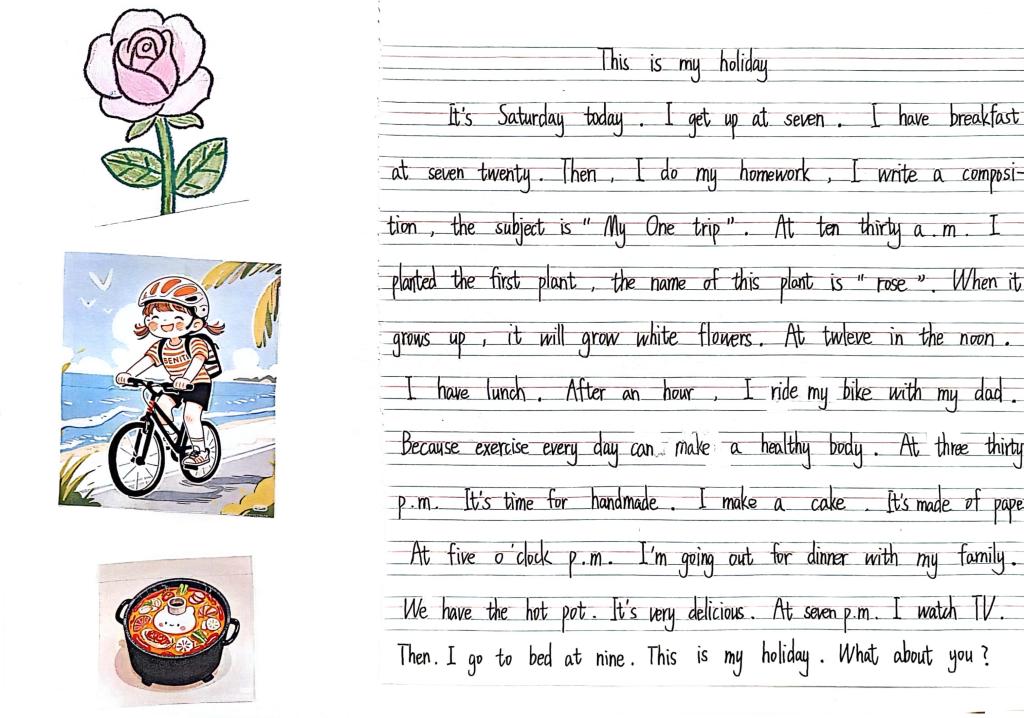 This is my holiday
It's Saturday today. I get up at seven. I have breakfast
at seven twenty. Then, I do my homework, I write a composi-
tion, the subject is "My One trip". At ten thirty a.m. I
planted the first plant, the name of this plant is "rose". When it
grows up, it will grow white flowers. At twleve in the noon.
I have lunch. After an hour, I ride my bike with my dad.
Because exercise every day can make a healthy body. At three thirty
p.m. It's time for handmade. I make a cake. It's made of pape
At five o'clock p.m. I'm going out for dinner with my family.
We have the hot pot. It's very delicious. At seven p.m. I watch TV.
Then. I go to bed at nine. This is my holiday. What about you?
BENITI